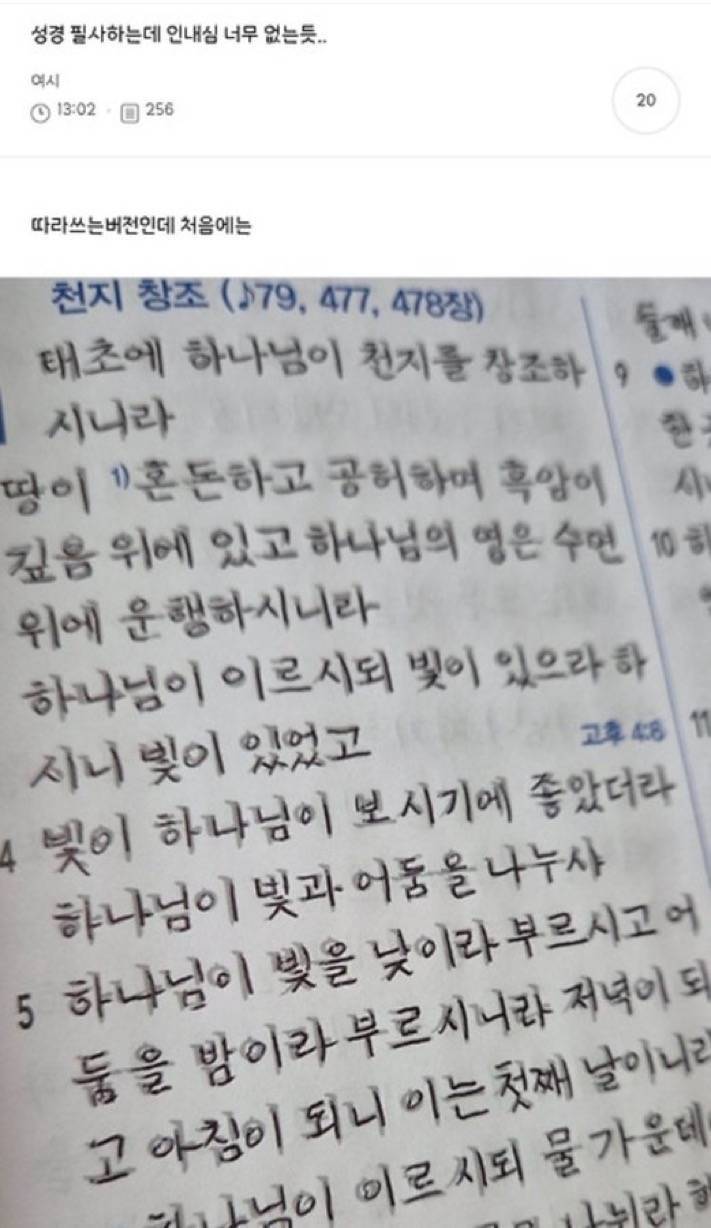 성경 필사하는데 인내심 너무 없는듯..
여시
13:02 · 256
20
따라쓰는버전인데 처음에는
천지 창조 (♪79, 477, 478장)
태초에 하나님이 천지를 창조하
시니라
땅이 1)혼돈하고 공허하며 흑암이
깊음 위에 있고 하나님의 영은 수면
위에 운행하시니라
하나님이 이르시되 빛이 있으라 하
시니 빛이 있었고
고후 4:6
4 빛이 하나님이 보시기에 좋았더라
하나님이 빛과 어둠을 나누사
5 하나님이 빛을 낮이라 부르시고 어
둠을 밤이라 부르시니라 저녁이 되
고 아침이 되니 이는 첫째 날이니라
하나님이 이르시되 물 가운데
나뉘라 하
9 하
한
시
10 하
11